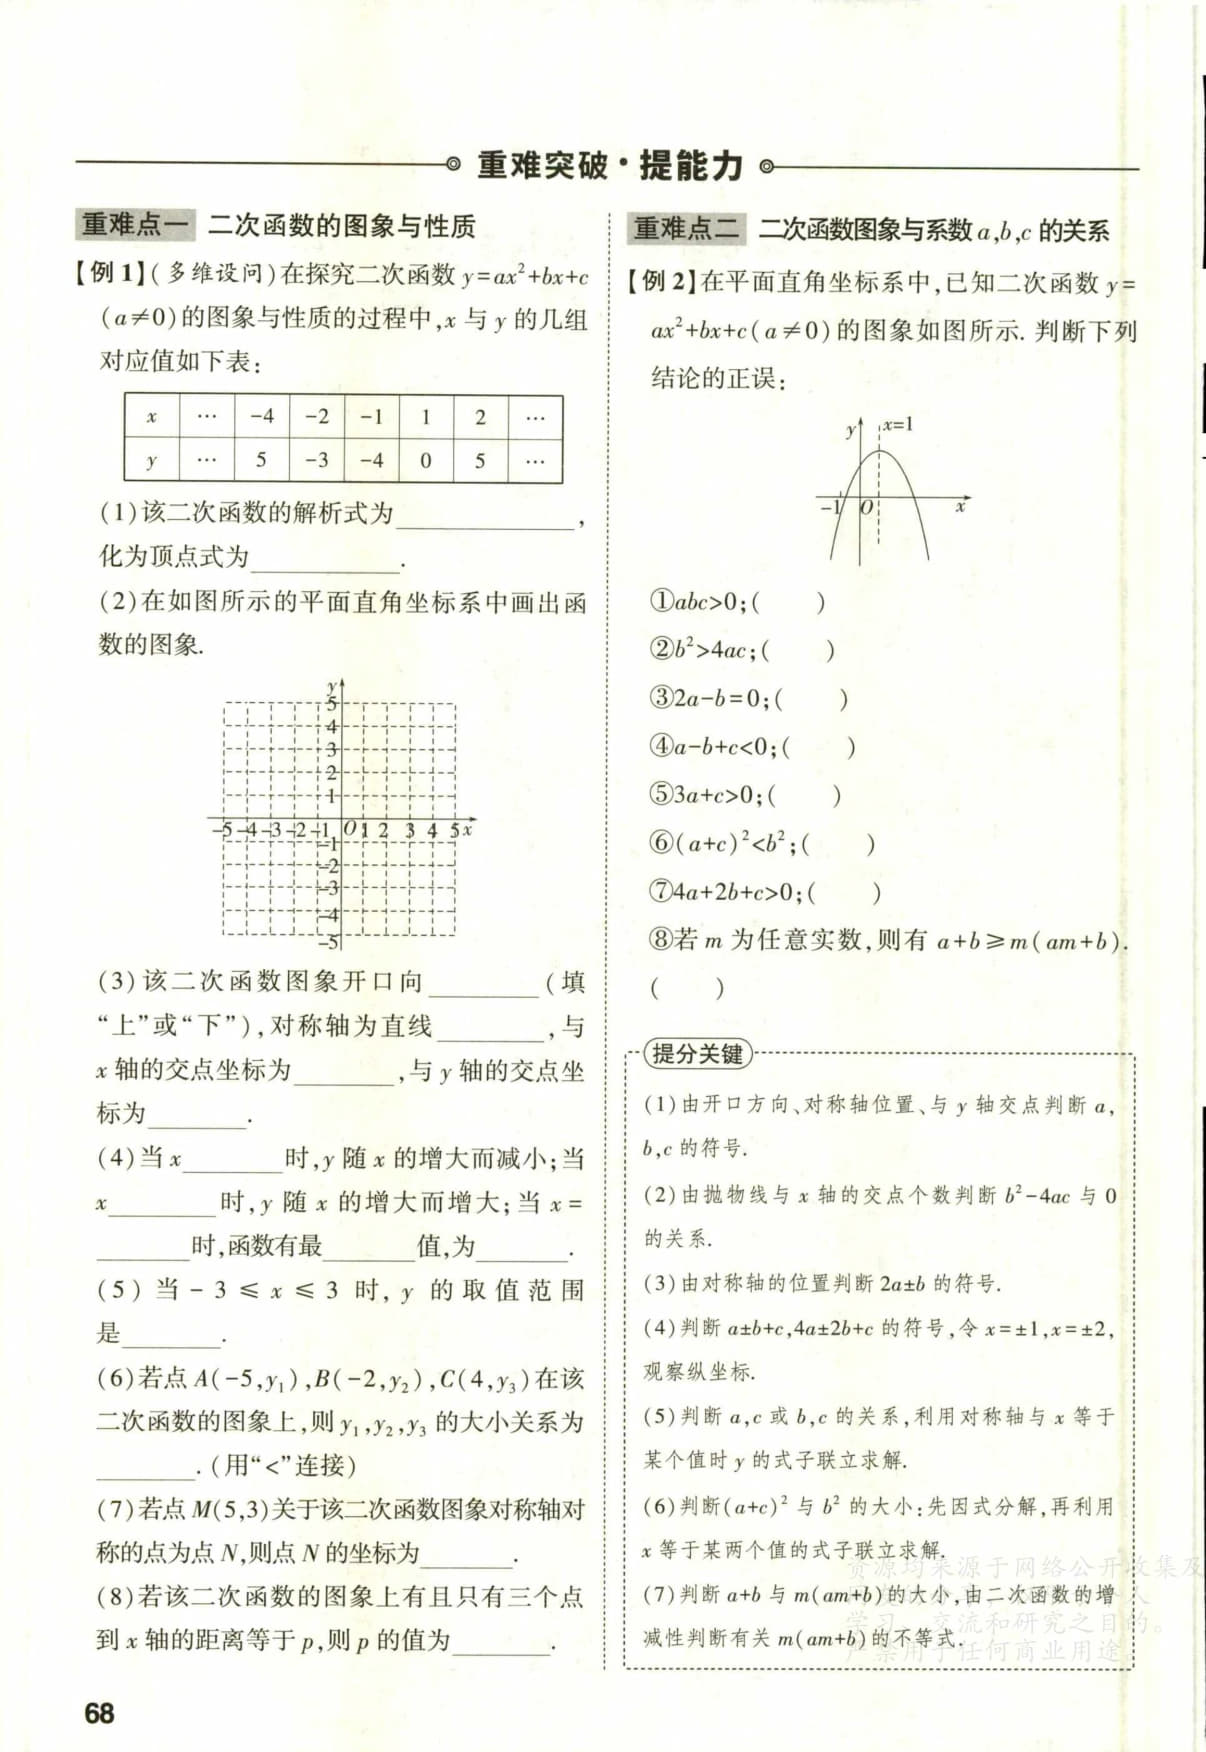 重难突破·提能力
重难点一 二次函数的图象与性质
【例1】(多维设问)在探究二次函数 y=ax²+bx+c
(a≠0)的图象与性质的过程中,x 与 y 的几组
对应值如下表:
x … -4 -2 -1 1 2 …
y … 5 -3 -4 0 5 …
(1)该二次函数的解析式为________,
化为顶点式为________.
(2)在如图所示的平面直角坐标系中画出函
数的图象.
y
5
4
3
2
1
-5 -4 -3 -2 -1 O 1 2 3 4 5 x
-1
-2
-3
-4
-5
(3)该二次函数图象开口向________(填
“上”或“下”),对称轴为直线________,与
x 轴的交点坐标为________,与 y 轴的交点坐
标为________.
(4)当 x________时,y 随 x 的增大而减小;当
x________时,y 随 x 的增大而增大;当 x=
________时,函数有最________值,为________.
(5)当 -3≤x≤3 时,y 的取值范围
是________.
(6)若点 A(-5,y₁),B(-2,y₂),C(4,y₃)在该
二次函数的图象上,则 y₁,y₂,y₃ 的大小关系为
________.(用“<”连接)
(7)若点 M(5,3)关于该二次函数图象对称轴对
称的点为点 N,则点 N 的坐标为________.
(8)若该二次函数的图象上有且只有三个点
到 x 轴的距离等于 p,则 p 的值为________.
68
重难点二 二次函数图象与系数 a,b,c 的关系
【例2】在平面直角坐标系中,已知二次函数 y=
ax²+bx+c(a≠0)的图象如图所示. 判断下列
结论的正误:
y x=1
-1 O x
①abc>0;( )
②b²>4ac;( )
③2a-b=0;( )
④a-b+c<0;( )
⑤3a+c>0;( )
⑥(a+c)²<b²;( )
⑦4a+2b+c>0;( )
⑧若 m 为任意实数,则有 a+b≥m(am+b).
( )
提分关键
(1)由开口方向、对称轴位置、与 y 轴交点判断 a,
b,c 的符号.
(2)由抛物线与 x 轴的交点个数判断 b²-4ac 与 0
的关系.
(3)由对称轴的位置判断 2a±b 的符号.
(4)判断 a±b+c,4a±2b+c 的符号,令 x=±1,x=±2,
观察纵坐标.
(5)判断 a,c 或 b,c 的关系,利用对称轴与 x 等于
某个值时 y 的式子联立求解.
(6)判断(a+c)² 与 b² 的大小:先因式分解,再利用
x 等于某两个值的式子联立求解.
(7)判断 a+b 与 m(am+b)的大小,由二次函数的增
减性判断有关 m(am+b)的不等式.
资源均来源于网络公开收集及
人
学习、交流和研究之目的。
严禁用于任何商业用途